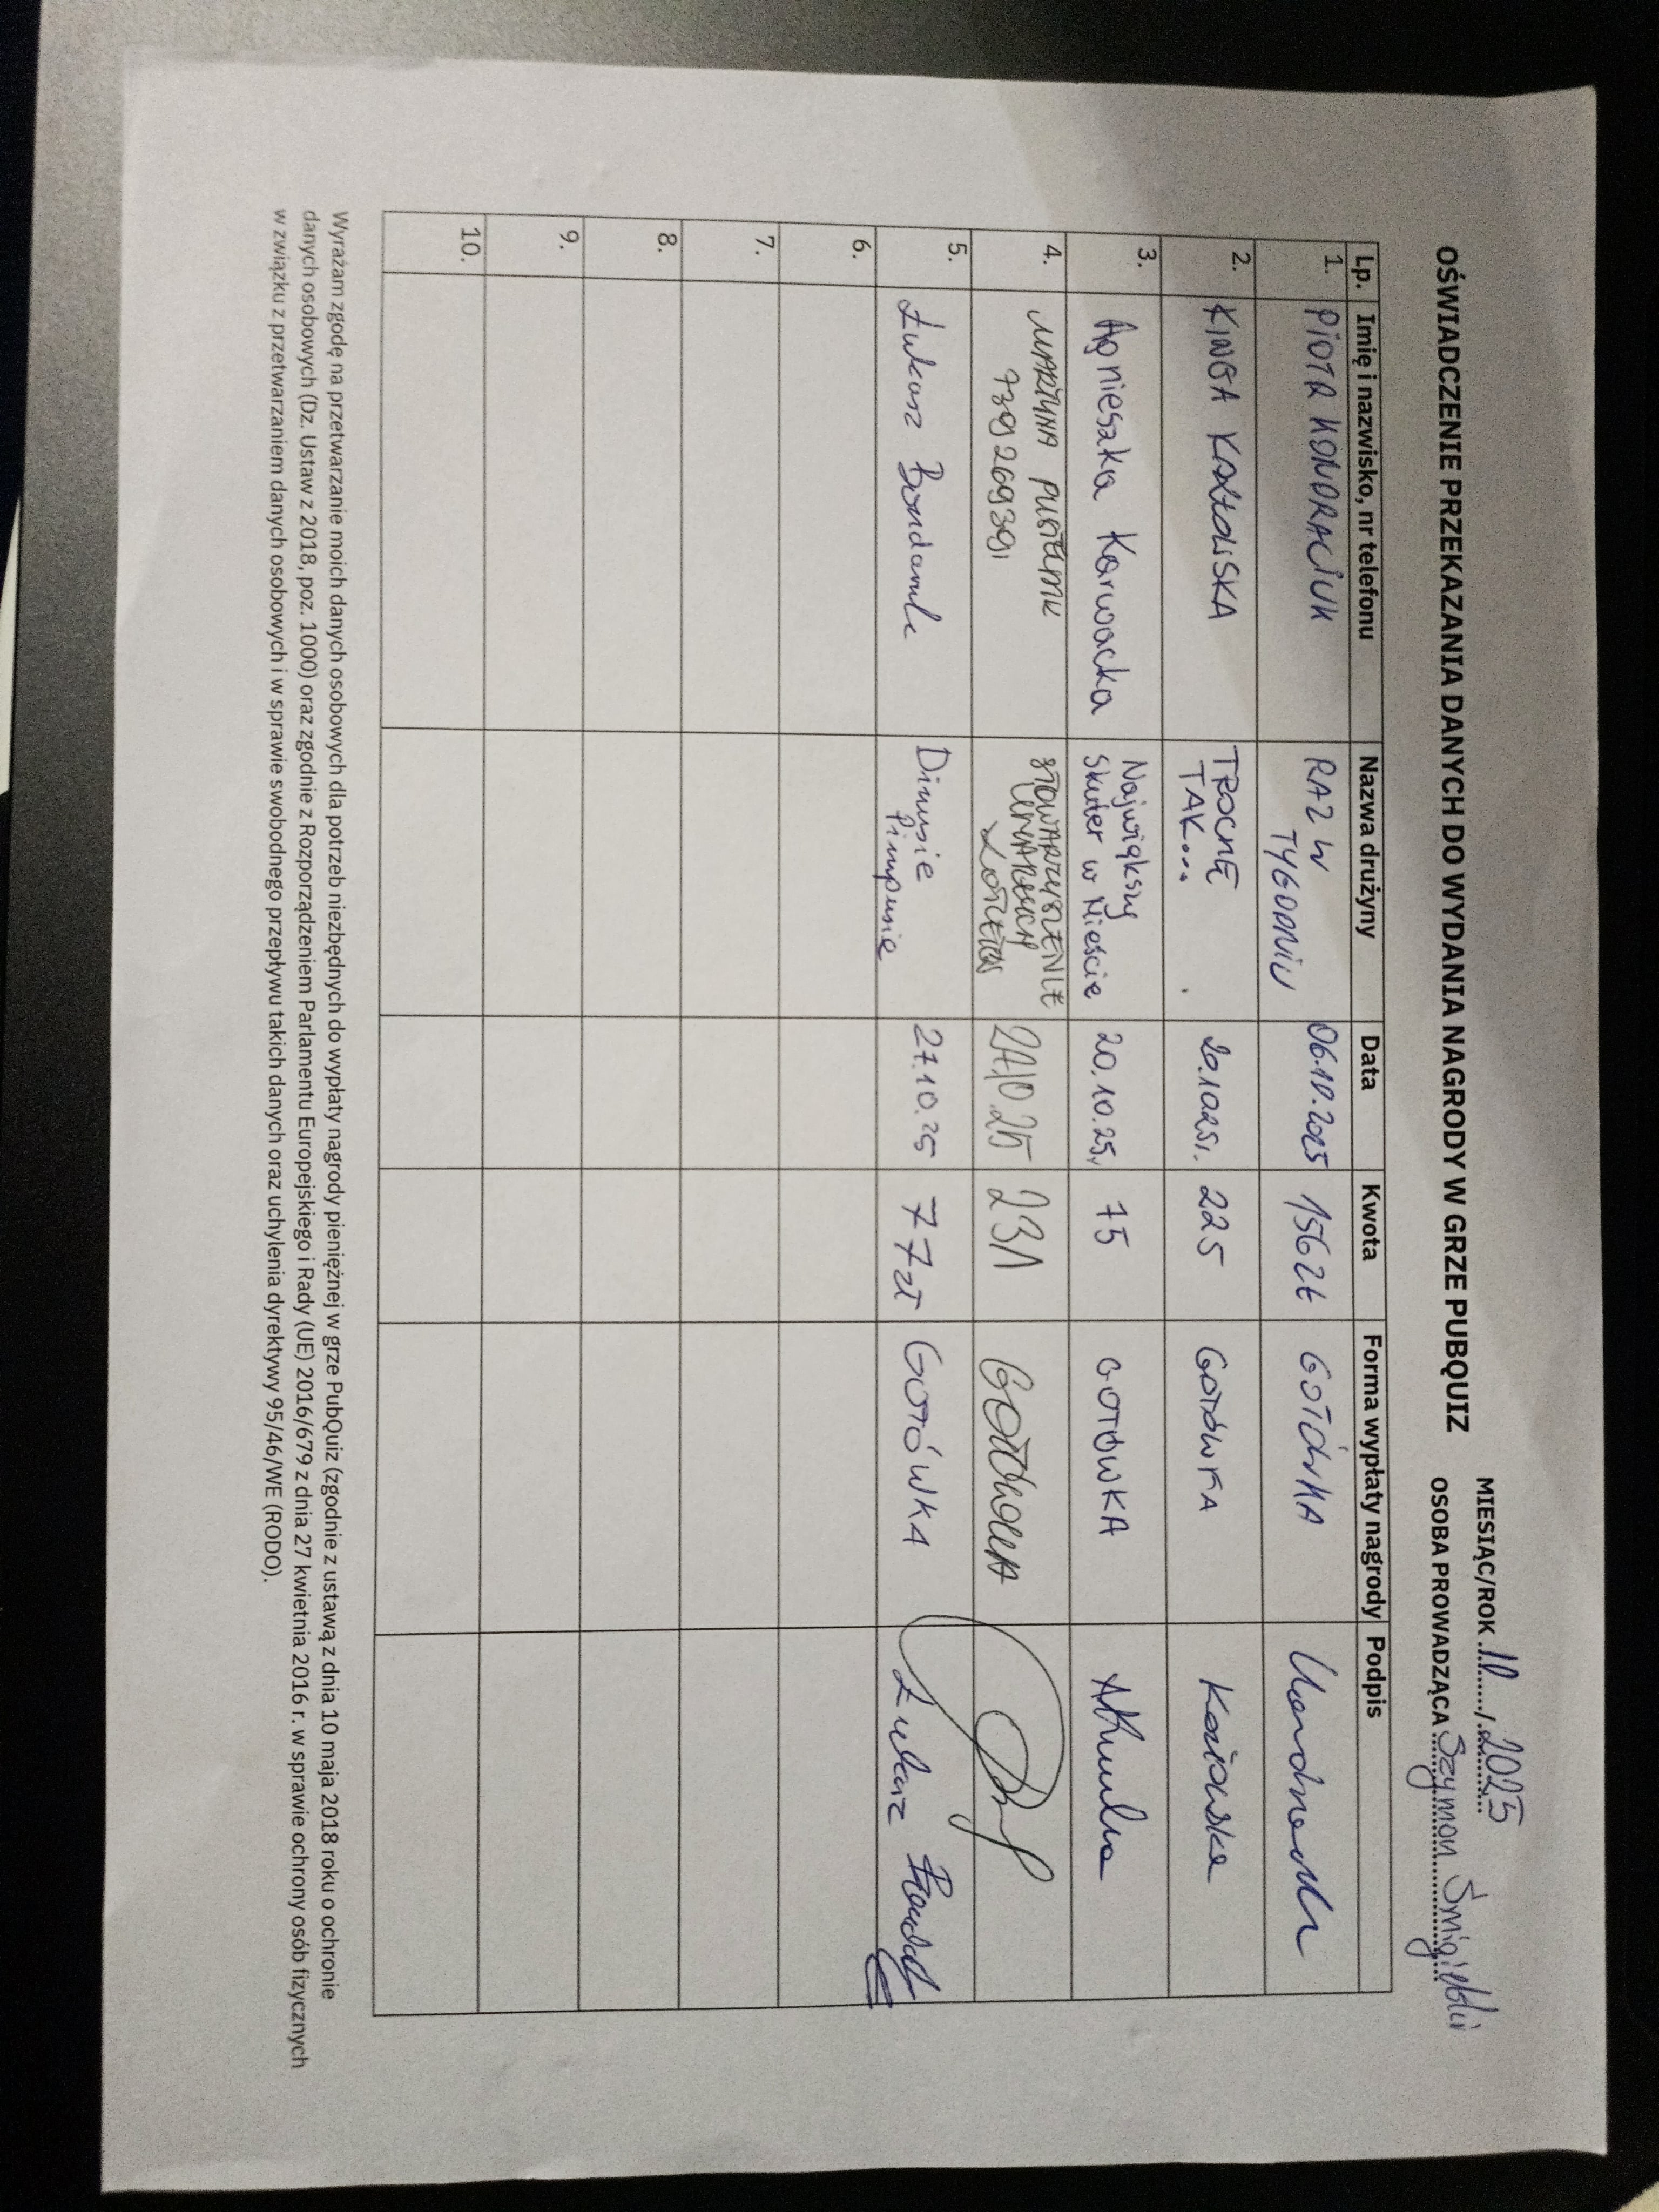 OŚWIADCZENIE PRZEKAZANIA DANYCH DO WYDANIA NAGRODY W GRZE PUBQUIZ
MIESIĄC/ROK 10 / 2025
OSOBA PROWADZĄCA Szymon Śmigielski
Lp. Imię i nazwisko, nr telefonu Nazwa drużyny Data Kwota Forma wypłaty nagrody Podpis
1. PIOTR KONDRACIUK RAZ W TYGODNIU 06.10.2025 156 ZŁ GOTÓWKA
2. KINGA KOZŁOWSKA TROCHĘ TAK... 20.10.25r. 225 GOTÓWKA Kozłowska
3. Agnieszka Karwacka Największy Skuter w Mieście 20.10.25r. 75 GOTÓWKA
4. MARTYNA 739269391 STOWARZYSZENIE 27.10.25 231 GOTÓWKA
5. Łukasz Dimusie Pimpusie 27.10.25 77 zł GOTÓWKA Łukasz
6.
7.
8.
9.
10.
Wyrażam zgodę na przetwarzanie moich danych osobowych dla potrzeb niezbędnych do wypłaty nagrody pieniężnej w grze PubQuiz (zgodnie z ustawą z dnia 10 maja 2018 roku o ochronie
danych osobowych (Dz. Ustaw z 2018, poz. 1000) oraz zgodnie z Rozporządzeniem Parlamentu Europejskiego i Rady (UE) 2016/679 z dnia 27 kwietnia 2016 r. w sprawie ochrony osób fizycznych
w związku z przetwarzaniem danych osobowych i w sprawie swobodnego przepływu takich danych oraz uchylenia dyrektywy 95/46/WE (RODO).